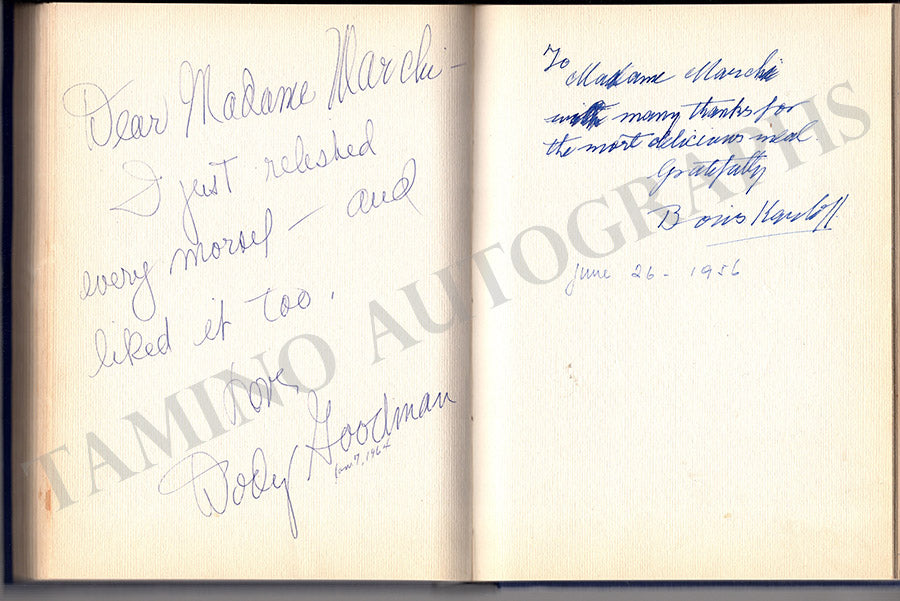 Dear Madame Marchi –
I just relished
every morsel – and
liked it too.
Love,
Dody Goodman
Jan 7, 1964
To
Madame Marchi
with many thanks for
the most delicious meal
Gratefully
Boris Karloff
June 26 - 1956
TAMINO AUTOGRAPHS